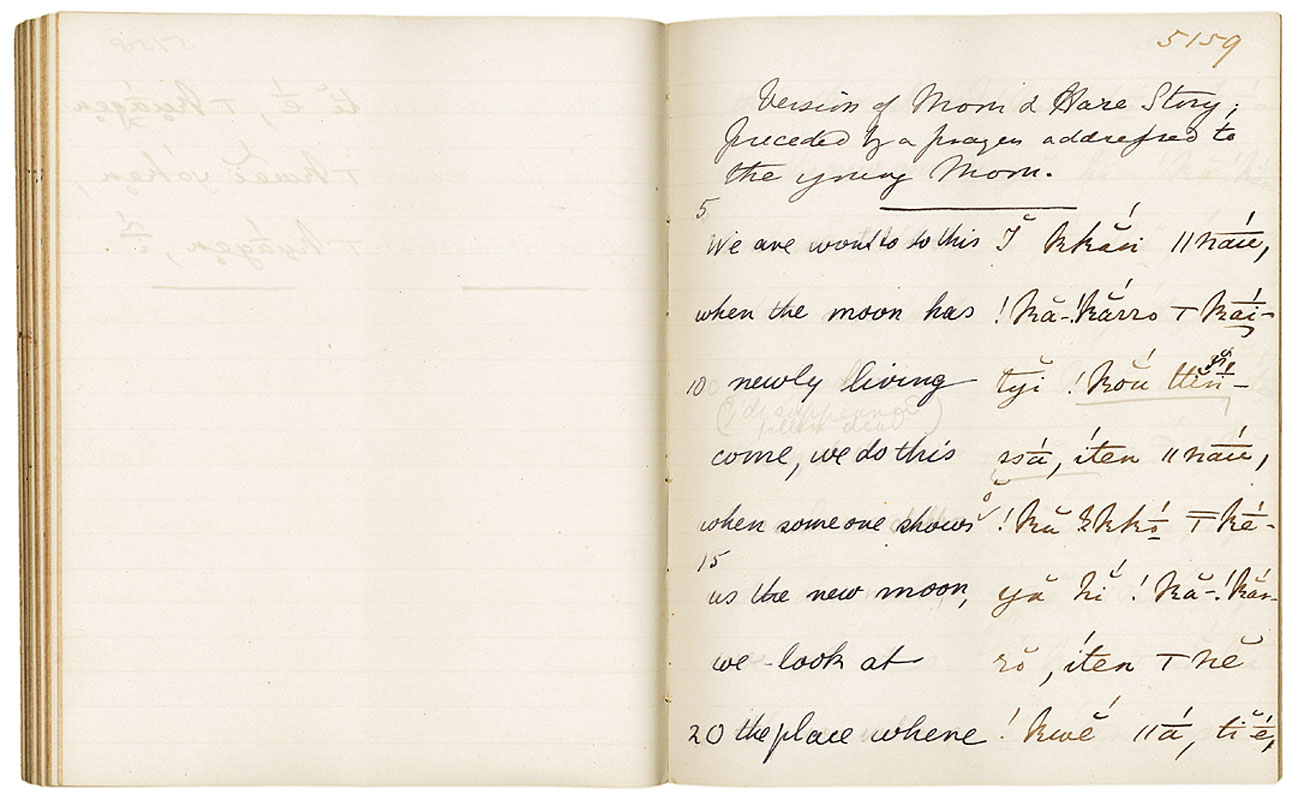 5159
Version of Moon & Hare Story;
preceded by a prayer addressed to
the young Moon.
5
We are wont to do this Ĭ kkăń ǁnāú,
when the moon has !kă-!kărro ǀkāí-
10 newly living tyĭ !kŏú
(? disappeared
fallen dead)
come, we do this ssā́, íten ǁnāú,
when someone shows !kŭ ǂkē-
15
us the new moon, yă hĭ !kă-!kăr-
we look at rŏ, íten ǀnĕ
20 the place where !kwĕ́ ǁā́, tĭ ḗ,